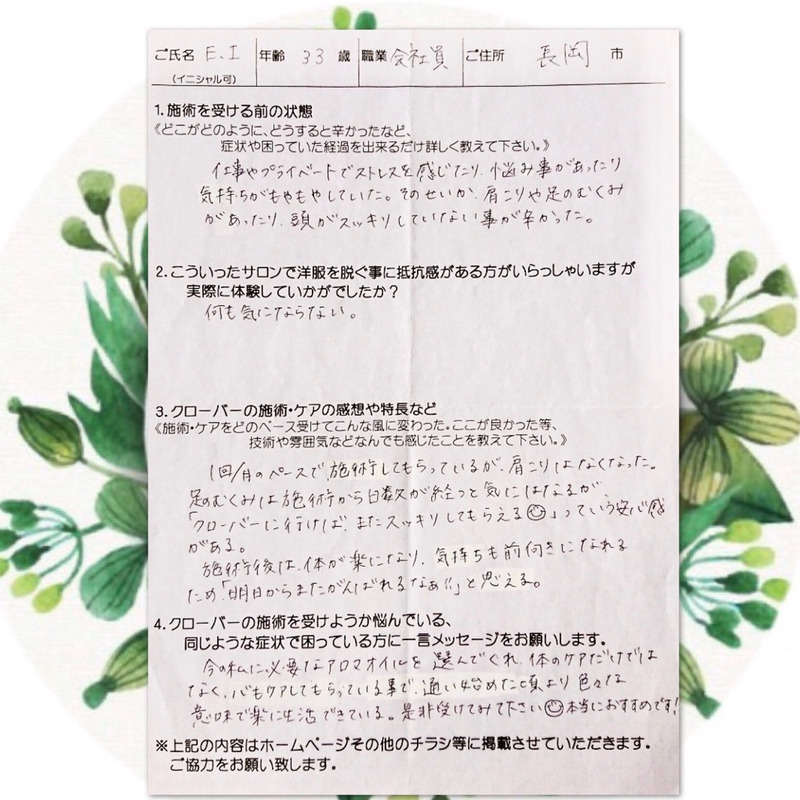 ご氏名 E.I 年齢 33 歳 職業 会社員 ご住所 長岡 市
(イニシャル可)
1.施術を受ける前の状態
《どこがどのように、どうすると辛かったなど、
症状や困っていた経過を出来るだけ詳しく教えて下さい。》
仕事やプライベートでストレスを感じたり、悩み事があったり
気持ちがもやもやしていた。そのせいか、肩こりや足のむくみ
があったり、頭がスッキリしていない事が辛かった。
2.こういったサロンで洋服を脱ぐ事に抵抗感がある方がいらっしゃいますが
実際に体験していかがでしたか？
何も気にならない。
3.クローバーの施術・ケアの感想や特長など
《施術・ケアをどのペース受けてこんな風に変わった。ここが良かった等、
技術や雰囲気などなんでも感じたことを教えて下さい。》
1回/月のペースで、施術してもらっているが、肩こりはなくなった。
足のむくみは施術から日数が経つと気にはなるが
「クローバーに行けば、またスッキリしてもらえる☺」っていう安心感
がある。
施術後は、体が楽になり、気持ちも前向きになれる
ため「明日からまたがんばれるなぁ!!」と思える。
4.クローバーの施術を受けようか悩んでいる、
同じような症状で困っている方に一言メッセージをお願いします。
今の私に必要なアロマオイルを選んでくれ、体のケアだけでは
なく、心もケアしてもらっている事で、通い始めた頃より色々な
意味で楽に生活できている。是非受けてみて下さい☺本当におすすめです!
※上記の内容はホームページその他のチラシ等に掲載させていただきます。
ご協力をお願い致します。